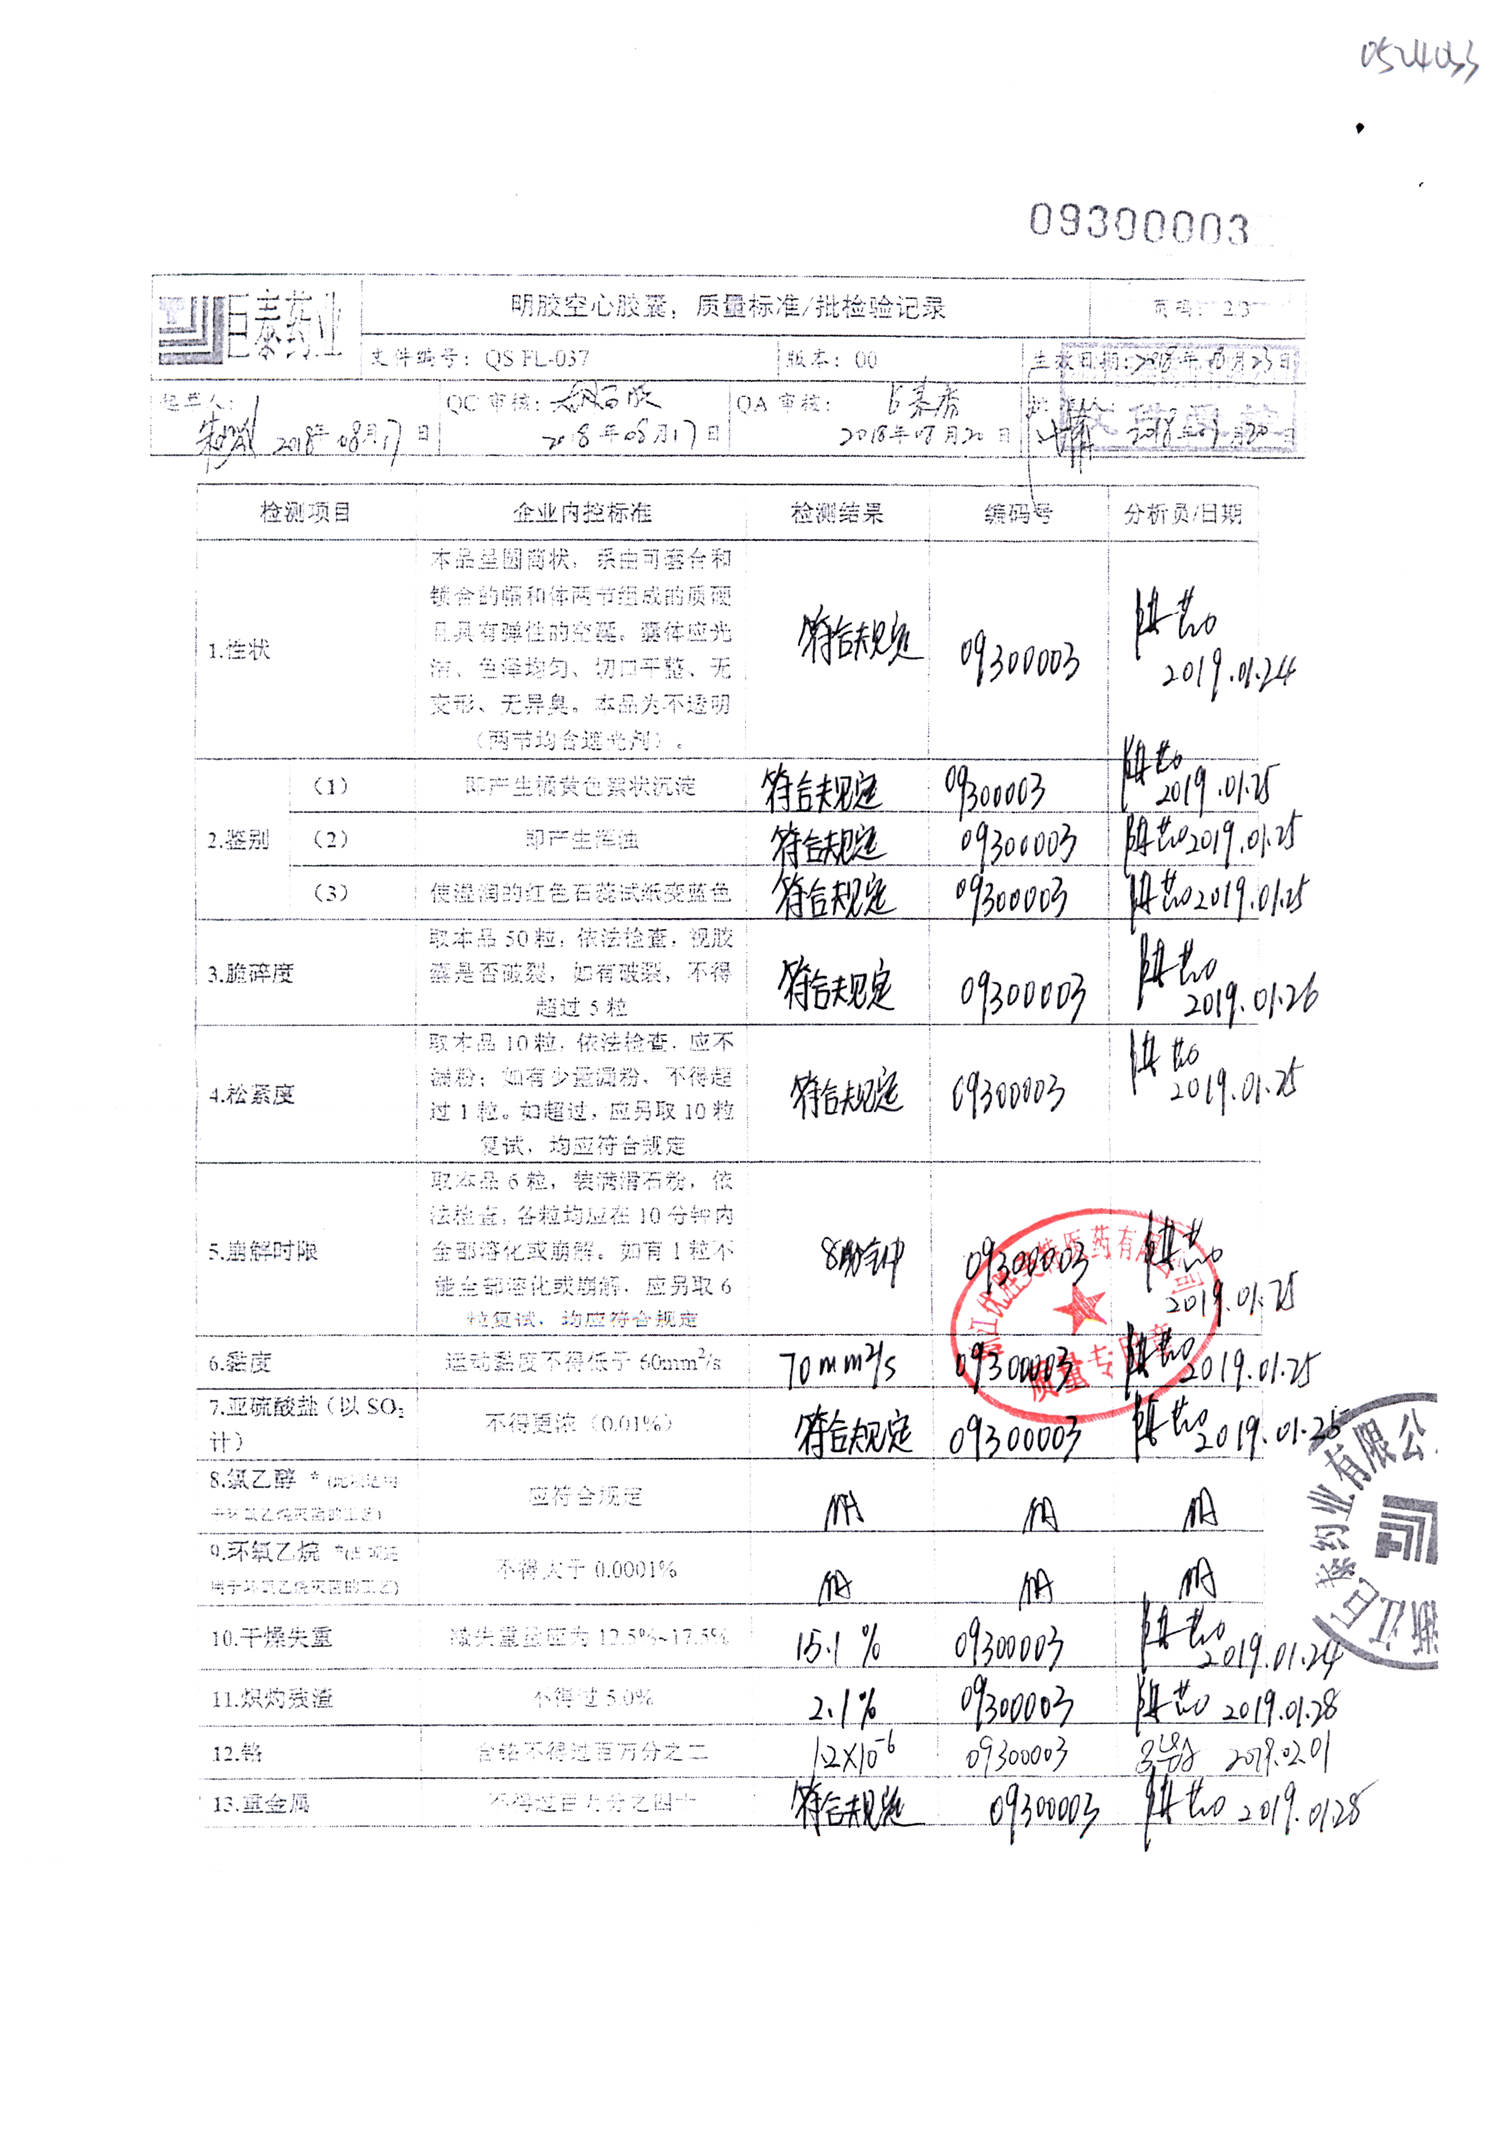 0524033
09300003
巨泰药业
明胶空心胶囊，质量标准/批检验记录
页码： 2/3
文件编号：QS FL-037
版本：00
生效日期：2018年08月23日
起草人：
QC 审核：
QA 审核：
2018年08月17日
2018年08月17日
2018年08月20日
检测项目 企业内控标准 检测结果 编码号 分析员/日期
1.性状
本品呈圆筒状，系由可套合和
锁合的帽和体两节组成的质硬
且具有弹性的空囊。囊体应光
洁、色泽均匀、切口平整、无
变形、无异臭。本品为不透明
（两节均含遮光剂）。
符合规定 09300003
2019.01.24
2.鉴别
（1） 即产生橘黄色絮状沉淀 符合规定 09300003 2019.01.25
（2） 即产生浑浊 符合规定 09300003 2019.01.25
（3） 使湿润的红色石蕊试纸变蓝色 符合规定 09300003 2019.01.25
3.脆碎度
取本品 50 粒，依法检查，视胶
囊是否破裂，如有破裂，不得
超过 5 粒
符合规定 09300003 2019.01.26
4.松紧度
取本品 10 粒，依法检查，应不
漏粉；如有少量漏粉，不得超
过 1 粒。如超过，应另取 10 粒
复试，均应符合规定
符合规定 09300003 2019.01.25
5.崩解时限
取本品 6 粒，装满滑石粉，依
法检查，各粒均应在 10 分钟内
全部溶化或崩解。如有 1 粒不
能全部溶化或崩解，应另取 6
粒复试，均应符合规定
8分钟 09300003 2019.01.25
浙江优胜美特医药有限公司
质量专用章
6.黏度 运动黏度不得低于 60mm²/s 70mm²/s 09300003 2019.01.25
7.亚硫酸盐（以 SO₂
计）
不得更浓（0.01%） 符合规定 09300003 2019.01.25
8.氯乙醇 *(此项适用
于环氧乙烷灭菌的工艺)
应符合规定 NA NA NA
9.环氧乙烷 *(此项适
用于环氧乙烷灭菌的工艺)
不得大于 0.0001% NA NA NA
10.干燥失重 减失重量应为 12.5%~17.5% 15.1% 09300003 2019.01.24
11.炽灼残渣 不得过 5.0% 2.1% 09300003 2019.01.28
12.铬 含铬不得过百万分之二 1.2×10⁻⁶ 09300003 2019.02.01
13.重金属 不得过百万分之四十 符合规定 09300003 2019.01.28
浙江巨泰药业有限公